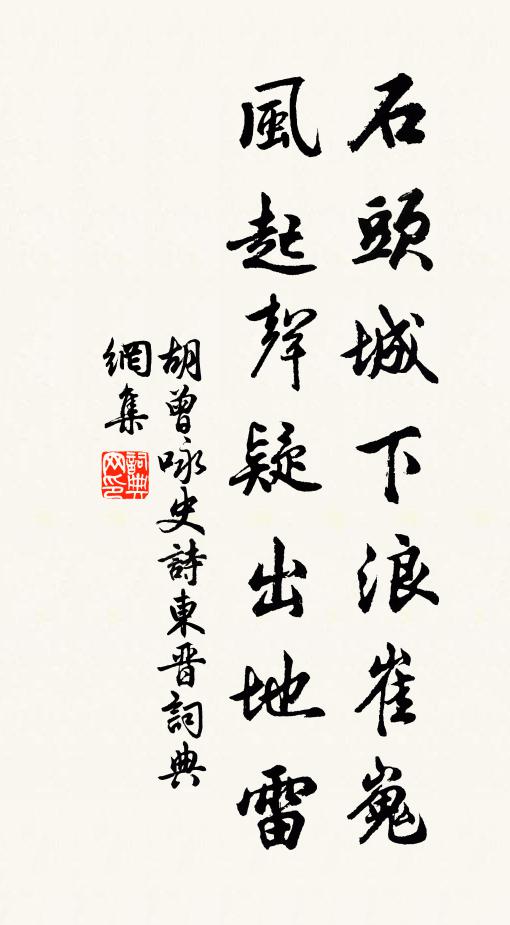 石頭城下浪崔嵬
風起聲疑出地雷
胡曾咏史詩東晋詞典
網集
詞典網印